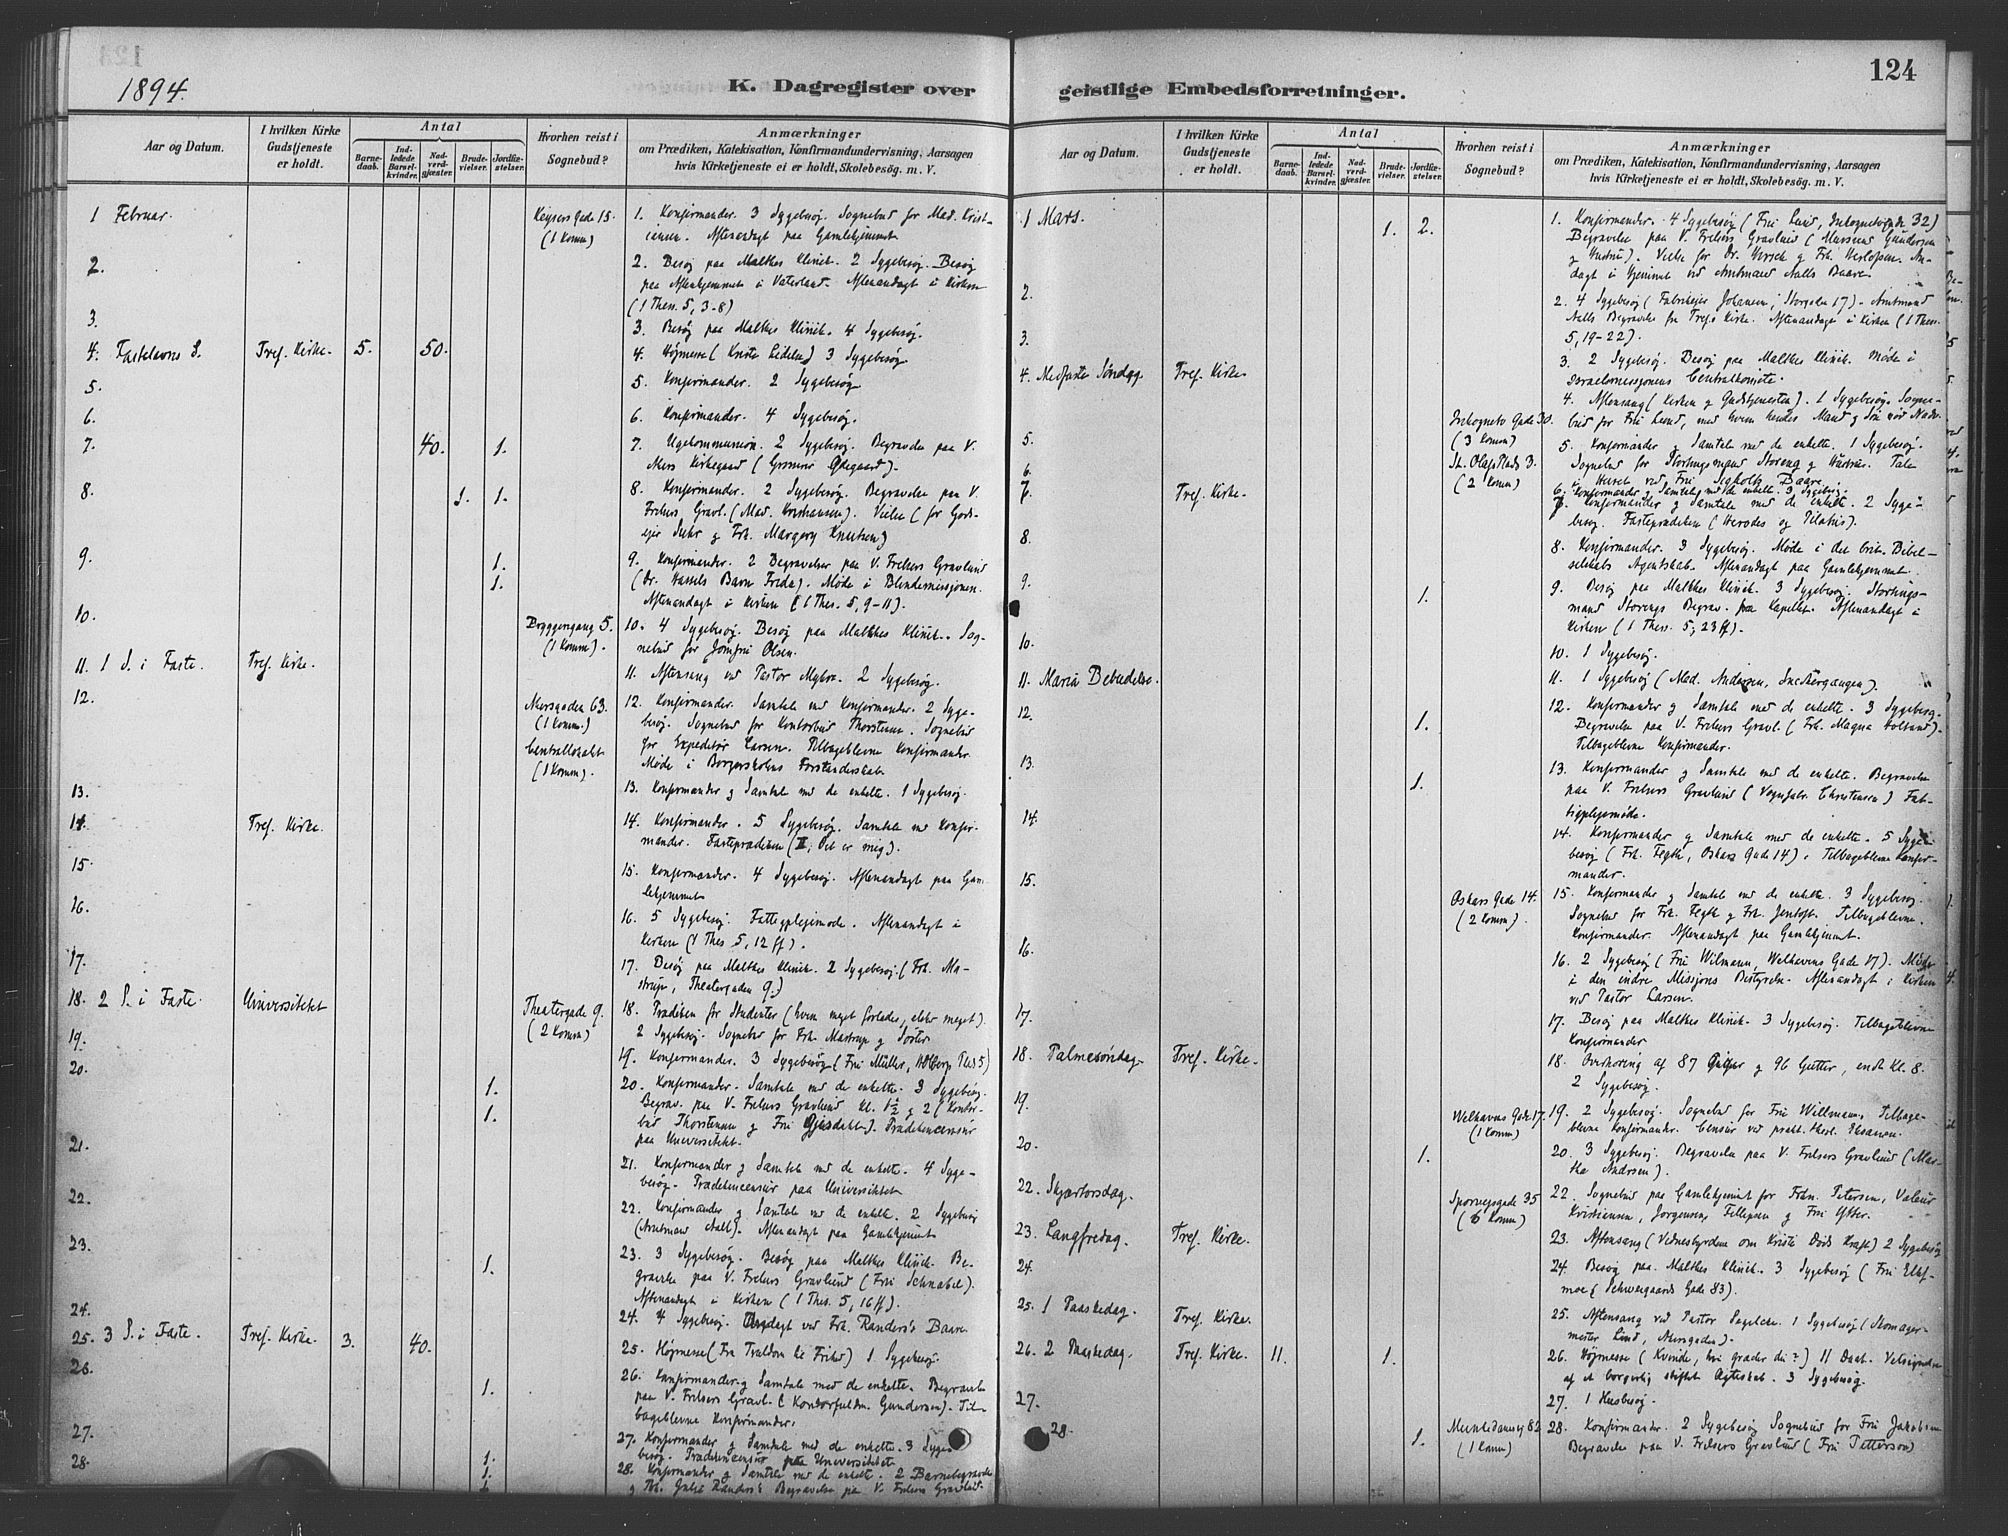 1894.
K. Dagregister over
Aar og Datum.
I hvilken Kirke Gudstjeneste er holdt.
Antal
Barnedaab.
Indledede Barselkvinder.
Nadverdgjæster.
Brudevielser.
Jordfæstelser.
Hvorhen reist i Sognebud?
Anmærkninger
om Prædiken, Katekisation, Konfirmandundervisning, Aarsagen
hvis Kirketjeneste ei er holdt, Skolebesøg. m. V.
1 Februar.
Keysers Gade 15.
(1 Komm)
1. Konfirmander. 3 Sygebesøg. Sognebud for Mad. Krist-
iansen. Aftenandagt paa Gamlehjemmet
2.
2. Besøg paa Malthes Klinik. 2 Sygebesøg. Besøg
paa Aftenhjemmet i Vaterland. Aftenandagt i Kirken
(1 Thess. 5, 3-8)
3.
3. Besøg paa Malthes Klinik. 4 Sygebesøg.
4. Fastelavns S. Tref. Kirke. 5. 50.
4. Højmesse (Kristi Lidelse) 3 Sygebesøg
5.
5. Konfirmander. 2 Sygebesøg
6.
6. Konfirmander. 4 Sygebesøg.
7. 40. 1.
7. Ugekommunion. 2 Sygebesøg. Begravelse paa V.
Akers Kirkegaard
8. 1. 1.
8. Konfirmander. 2 Sygebesøg. Begravelse paa V.
Frelsers Gravl. (Mad. Kristiansen). Vielse (for Gods-
ejer Suhr og Frk. Margery Knutsen)
9. 1.
1.
9. Konfirmander. 2 Begravelser paa V. Frelsers Gravlund
(Dr. Hassels Barn Freda). Møde i Blindemissjonen.
Aftenandagt i Kirken (1 Thes. 5, 9-11).
10.
Bryggergang 5.
(1 Komm).
10. 4 Sygebesøg. Besøg paa Malthes Klinik. Sog-
nebud for Jomfru Olsen.
11. 1 S. i Faste. Tref. Kirke.
11. Aftensang ved Pastor Myhre. 2 Sygebesøg.
12.
Akersgaden 63.
(1 Komm.)
Centrallokalet
(1 Komm).
12. Konfirmander. Samtale med Konfirmander. 2 Syge-
besøg. Sognebud for Kontorbud Thorstensen. Sognebud
for Expeditør Larsen. Tilbageblevne Konfirmander.
Møde i Borgerskolens Forstanderskab
13.
13. Konfirmander og Samtale med de enkelte. 1 Sygebesøg.
14. Tref. Kirke.
14. Konfirmander. 5 Sygebesøg. Samtale med Konfir-
mander. Fasteprædiken (II; Det er mig).
15.
15. Konfirmander. 4 Sygebesøg. Aftenandagt paa Gam-
lehjemmet
16.
16. 5 Sygebesøg. Fattigplejemøde. Aftenandagt i
Kirken (1 Thes 5, 12 ff).
17.
17. Besøg paa Malthes Klinik. 2 Sygebesøg. (Frk. Ma-
strup, Theatergaden 9.)
18. 2 S. i Faste. Universitetet
Theatergade 9.
(2 Komm)
18. Prædiken for Studenter (hvem meget forlades, elsker meget).
2 Sygebesøg. Sognebud for Frk. Mastrup og Søster
19.
19. Konfirmander. 3 Sygebesøg (Fru Müller, Holbergs Plads 5)
20. 1.
1.
20. Konfirmander. Samtale med de enkelte. 3 Sygebesøg.
Begrav. paa V. Frelsers Gravlund Kl. 1 ½ og 2 (Kontor-
bud Thorstensen og Fru). Prædikencensur
paa Universitetet.
21.
21. Konfirmander og Samtale med de enkelte. 4 Syge-
besøg. Prædikencensur paa Universitetet
22.
22. Konfirmander og Samtale med de enkelte. 2 Sygebesøg
(Amtmand Aall). Aftenandagt paa Gamlehjemmet
23. 1.
23. 3 Sygebesøg. Besøg paa Malthes Klinik. Be-
gravelse paa V. Frelsers Gravlund (Fru Schnabel).
Aftenandagt i Kirken (1 Thes. 5, 16 ff).
24.
24. 4 Sygebesøg. Andagt ved Frk. Randers's Baare
25. 3 S. i Faste. Tref. Kirke. 3. 40.
25. Højmesse (Fra Trældom til Frihed) 1 Sygebesøg.
26. 1.
26. Konfirmander og Samtale med de enkelte. Begravelse
paa V. Frelsers Gravl. (Kontorfuldm. Gundersen). Til-
bageblevne Konfirmander.
27.
27. Konfirmander og Samtale med de enkelte. 3 Syge-
besøg. Prædikencensur paa Universitetet
28. 1.
1.
28. Konfirmander og Samtale med de enkelte. 2 Barnebegravelse
og Frk. Julie Randers's Begravelse paa V. Frelsers Gravlund.
124
geistlige Embedsforretninger.
Aar og Datum.
I hvilken Kirke Gudstjeneste er holdt.
Antal
Barnedaab.
Indledede Barselkvinder.
Nadverdgjæster.
Brudevielser.
Jordfæstelser.
Hvorhen reist i Sognebud?
Anmærkninger
om Prædiken, Katekisation, Konfirmandundervisning, Aarsagen
hvis Kirketjeneste ei er holdt, Skolebesøg. m. V.
1 Mars. 1. 2.
1. Konfirmander. 4 Sygebesøg (Fru Lund, Inkognitogade 32)
Begravelse paa V. Frelsers Gravlund (Gundersen
og Hustru). Vielse for Dr. Frk. An-
dagt i Hjemmet ved Amtmand Aalls Baare.
2.
2. 4 Sygebesøg (Fabrikejer Johansen, Storgaden 17). Amtmand
Aalls Begravelse fra Trefs Kirke. Aftenandagt i Kirken (1 Thess.
5, 19-22).
3.
3. 2 Sygebesøg. Besøg paa Malthes Klinik. Møde i
Israelsmissjonens Centralkomite.
4. Midfaste Søndag. Tref. Kirke
Inkognito Gade 30.
(3 Komm)
4. Aftensang (Kirken og Gudstjenesten). 1 Sygebesøg. Sogne-
bud for Fru Lund, med hvem hendes Mand og Søn nød Nadv.
5.
St. Olafs Plads 3.
(2 Komm)
5. Konfirmander og Samtale med de enkelte. 1 Sygebesøg.
Sognebud for Stortingsmand Storeng og Hustru. Tale
i Huset ved Fru Baare.
6.
6. Konfirmander og Samtale med de enkelte. 3 Sygebesøg
7. Tref. Kirke.
7. Konfirmander og Samtale med de enkelte. 2 Syge-
besøg. Fasteprædiken (Herodes og Pilatus).
8.
8. Konfirmander. 3 Sygebesøg. Møde i det brit. Bibel-
selskabs Agentskab. Aftenandagt paa Gamlehjemmet.
9. 1.
9. Besøg paa Malthes Klinik. 3 Sygebesøg. Stortings-
mand Storengs Begrav. fra Kapellet. Aftenandagt i
Kirken (1 Thess. 5, 23 ff).
10.
10. 1 Sygebesøg.
11. Maria Bebudelse.
11. 1 Sygebesøg (Mad. Andersen,).
12. 1.
12. Konfirmander og Samtale med de enkelte. 3 Sygebesøg.
Begravelse paa V. Frelsers Gravl. (Frk. Magna).
Tilbageblevne Konfirmander.
13. 1.
13. Konfirmander og Samtale med de enkelte. Begravelse
paa V. Frelsers Gravlund (Vognfabr. Christensen) Fat-
tigplejemøde.
14.
14. Konfirmander og Samtale med de enkelte. 5 Syge-
besøg (Frk. Fegth, Oskars Gade 14). Tilbageblevne Konfir-
mander.
15.
Oskars Gade 14.
(2 Komm).
15. Konfirmander og Samtale med de enkelte. 3 Sygebesøg.
Sognebud for Frk. Fegth og Frk. Jentoft. Tilbageblevne
Konfirmander. Aftenandagt paa Gamlehjemmet.
16.
16. 2 Sygebesøg (Fru Wilmann, Welhavens Gade 17). Møde
i den indre Missjons Bestyrelse. Aftenandagt i Kirken
ved Pastor Larsen.
17.
17. Besøg paa Malthes Klinik. 3 Sygebesøg. Tilbageblevne
Konfirmander
18. Palmesøndag. Tref. Kirke.
18. Overhøring af 87 Piger og 96 Gutter, endt Kl. 8.
2 Sygebesøg.
19.
Welhavens Gade 17.
(1 Komm)
19. 2 Sygebesøg. Sognebud for Fru Willmann. Tilbage-
blevne Konfirmander. Censur ved prakt. theol. Eksamen.
20. 1.
20. 3 Sygebesøg. Begravelse paa V. Frelsers Gravlund (Mar-
tha Andersen).
22. Skjærtorsdag.
Sporveisgade 35
(6 Komm)
22. Sognebud paa Gamlehjemmet for Frkn. Petersen,
Kristiansen, Jørgensen, Fillipsen og Fru Ytter.
23. Langfredag. Tref. Kirke.
23. Aftensang (Vidnesbyrdene om Kristi Døds Kraft) 2 Sygebesøg
24.
24. Besøg paa Malthes Klinik. 3 Sygebesøg (Fru Elef-
moe (Schweigaards Gade 83).
25. 1 Paaskedag. Tref. Kirke.
25. Aftensang ved Pastor. 1 Sygebesøg (Skomager-
mester Lund, Akersgaden).
26. 2 Paaskedag. Tref. Kirke. 11. 1.
26. Højmesse (Kvinde, hvi græder du?) 11 Daab. Velsignelse
af et borgerlig stiftet Ægteskab. 3 Sygebesøg.
27.
27. 1 Husbesøg.
28. 1.
Munkedamsvej 82
(1 Komm)
28. Konfirmander. 2 Sygebesøg Sognebud for Fru Jakobsen
Begravelse paa V. Frelsers Gravlund (Fru Petterson)